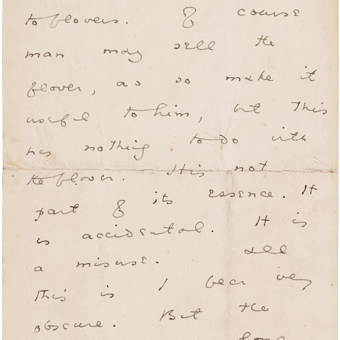 to flowers. Of course
man may sell the
flower, and so make it
useful to him, but this
has nothing to do with
the flower. It is not
part of its essence. It
is accidental. It is
a misuse. All
this is I fear very
obscure. But the
long